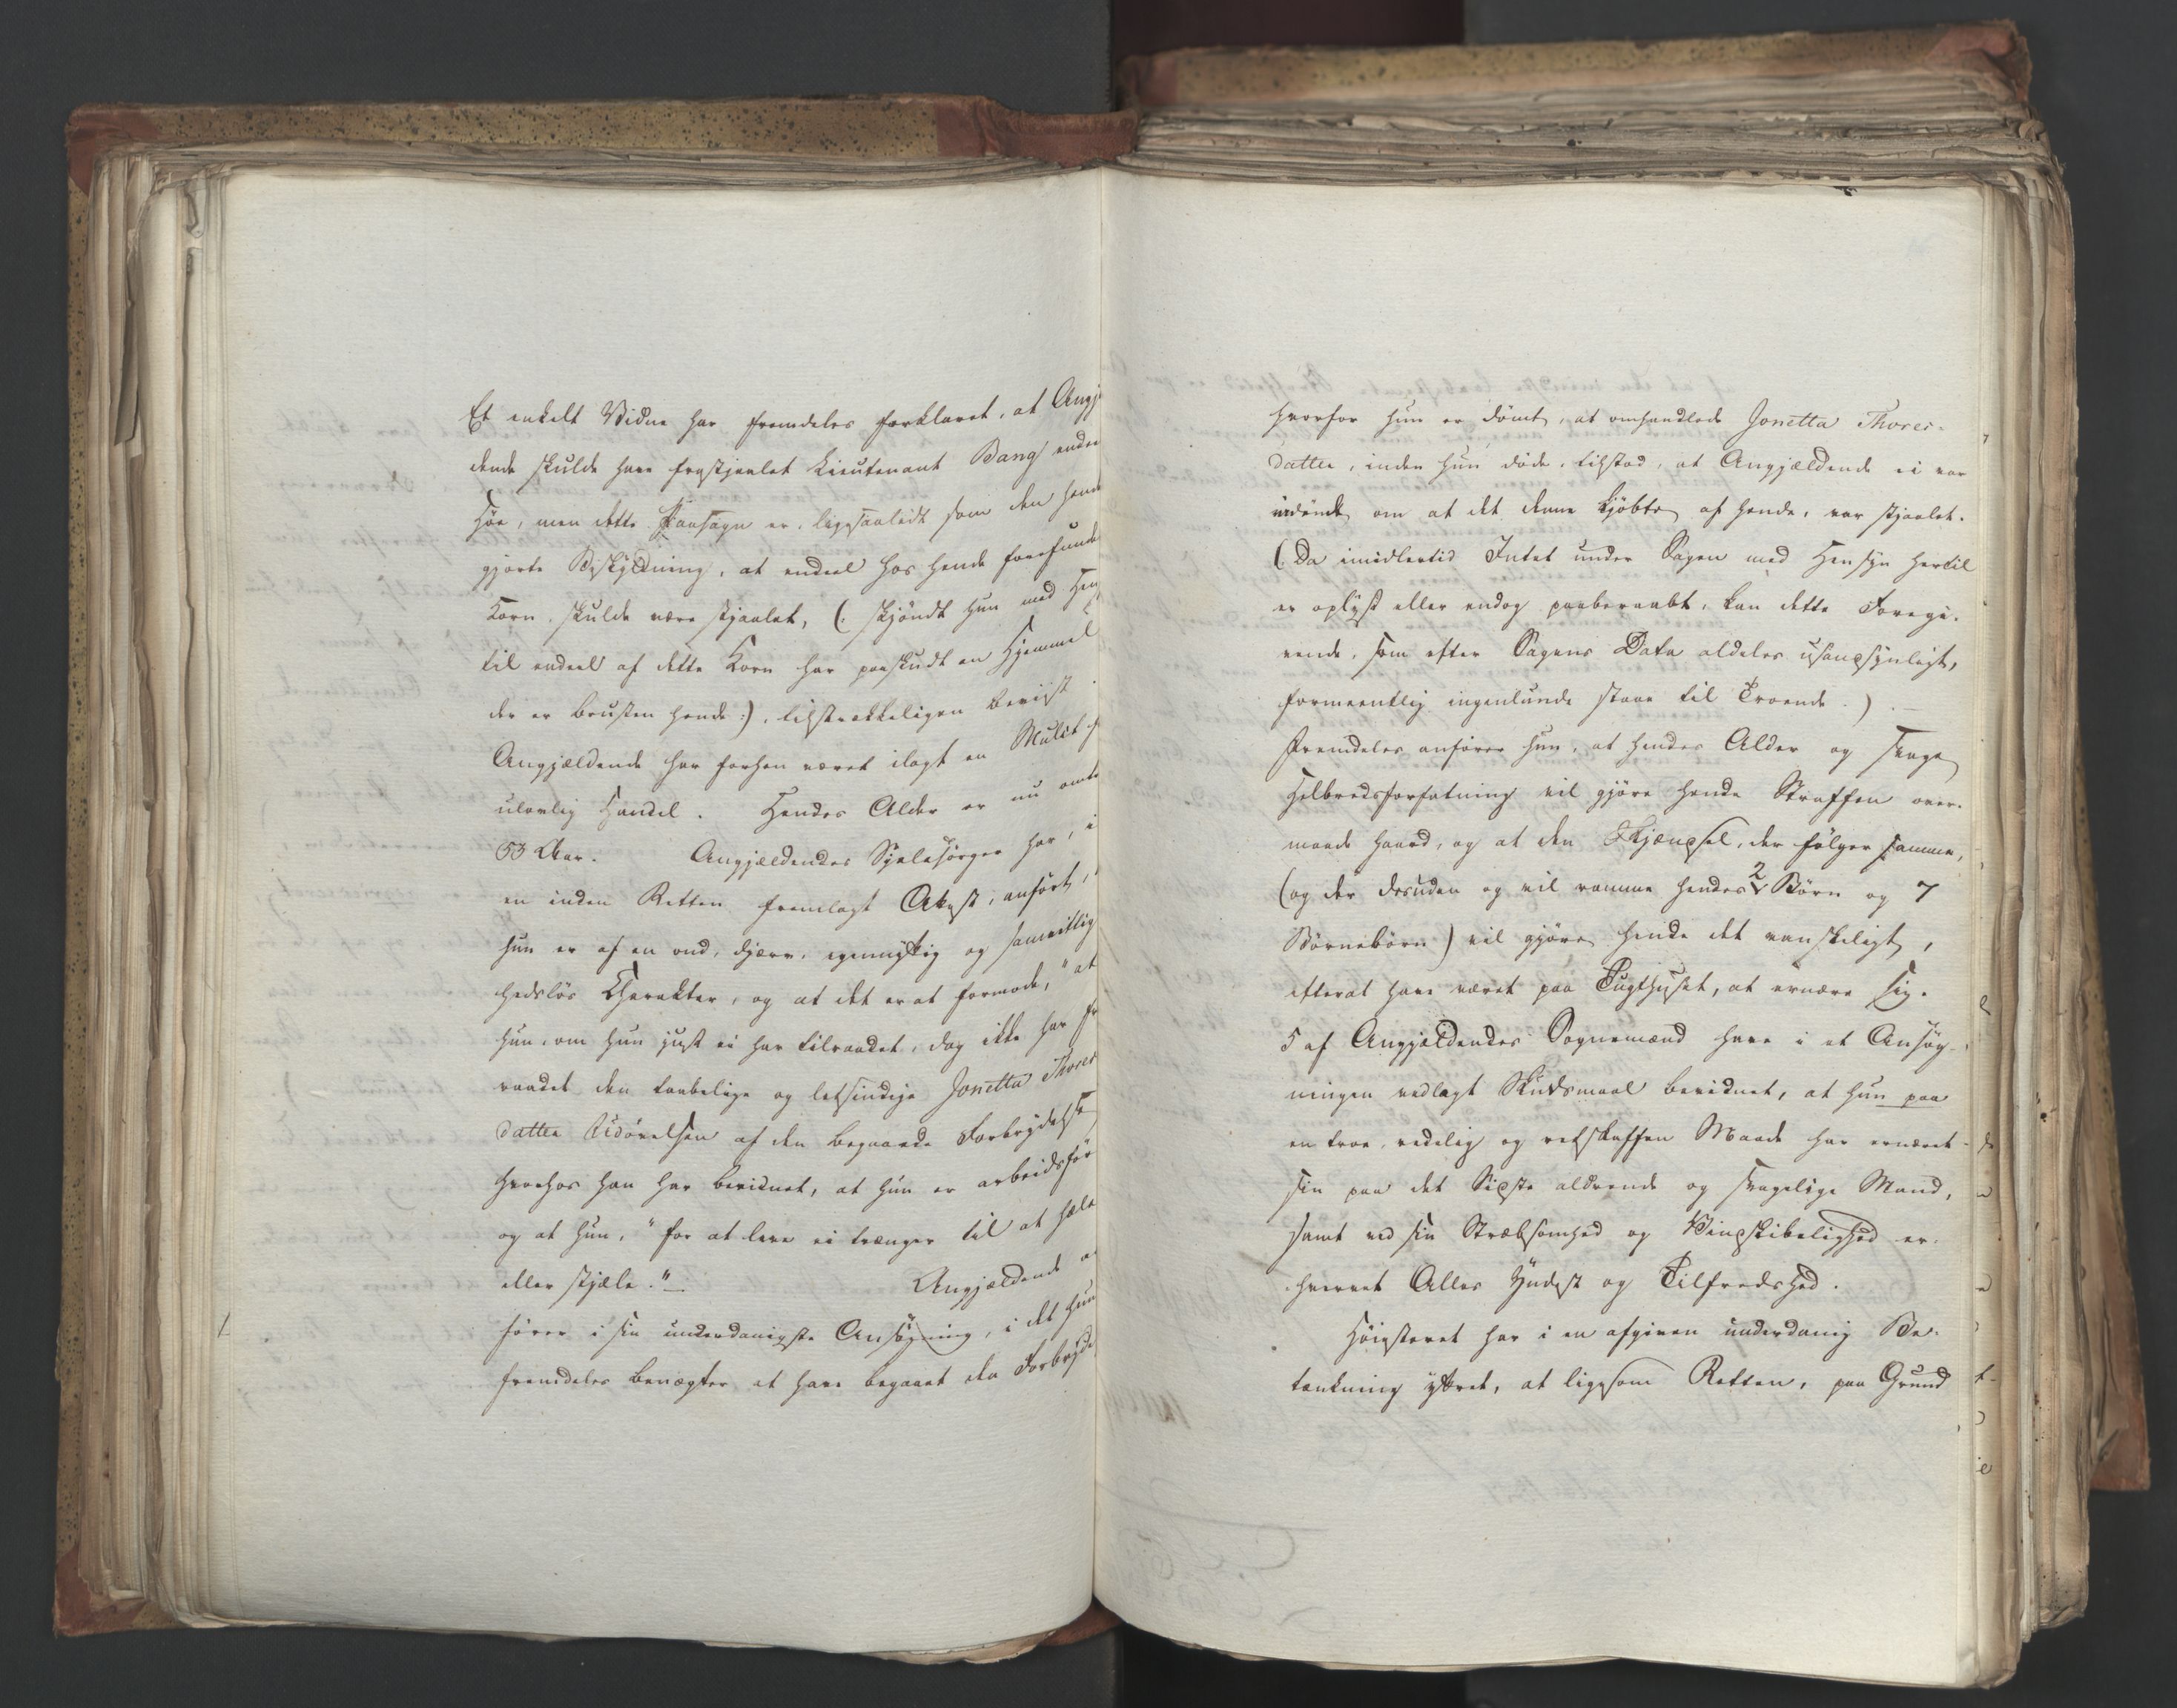 Et enkelt Vidne har fremdeles forklaret, at Angj
dende skulde have frastjaalet Lieutenant Bang endeel
Höe, men dette Paasagn er, ligesaalidt som den hende
gjorte Beskyldning, at endeel hos hende forefundet
Korn, skulde være stjaalet, (: skjöndt hun med Hen
til endeel af dette Korn har paaskudt en Hjemmel
der er brusten hende :), tilstrækkeligen beviist.
Angjældende har forhen været ilagt en Mulct f
ulovlig Handel. Hendes Alder er nu omtr
53 Aar. Angjældendes Sjelesörger har, i
en inden Retten fremlagt Attest, anfört,
hun er af en ond, djærv, egennyttig og samvittig
hedslös Charakter, og at det er at formode, "at
hun, om hun just ei har tilraadet, dog ikke har fr
raadet den taabelige og letsindige Jonetta Thores
datter Udövelsen af den begaaede Forbrydelse,
hvorhos han har bevidnet, at hun er arbeidsför
og at hun, "for at leve ei trænger til at hæle
eller stjæle."_ Angjældende a
förer i sin underdanigste Ansögning, i det hun
fremdeles benægter at have begaaet den Forbryde
hvorfor hun er dömt, at omhandlede Jonetta Thores-
datter, inden hun döde, tilstod, at Angjældende ei var
vidende om at det denne kjöbte af hende, var stjaalet.
(Da imidlertid Intet under Sagen med Hensyn hertil
er oplyst eller endog paaberaabt, kan dette Foregi-
vende, som efter Sagens Data aldeles usandsynligt,
formeentlig ingenlunde staae til Troende.)._
Fremdeles anförer hun, at hendes Alder og svage
Helbredsforfatning vil gjöre hende Straffen over-
maade haard, og at den Skjændsel, der fölger samme,
(og der desuden og vil ramme hendes 2 Börn og 7
Börnebörn) vil gjöre hende det vanskeligt,
efterat have været paa Tugthuset, at ernære sig.
5 af Angjældendes Sognemænd have i et Ansög-
ningen vedlagt Skudsmaal bevidnet, at hun paa
en troe, redelig og retskaffen Maade har ernæret
sin paa det Sidste aldrende og svagelige Mand,
samt ved sin Stræbsomhed og Vindskibelighed er-
hvervet Alles Yndest og Tilfredshed.
Höiesteret har i en afgiven underdanig Be-
tænkning yttret, at ligesom Retten, paa Grund